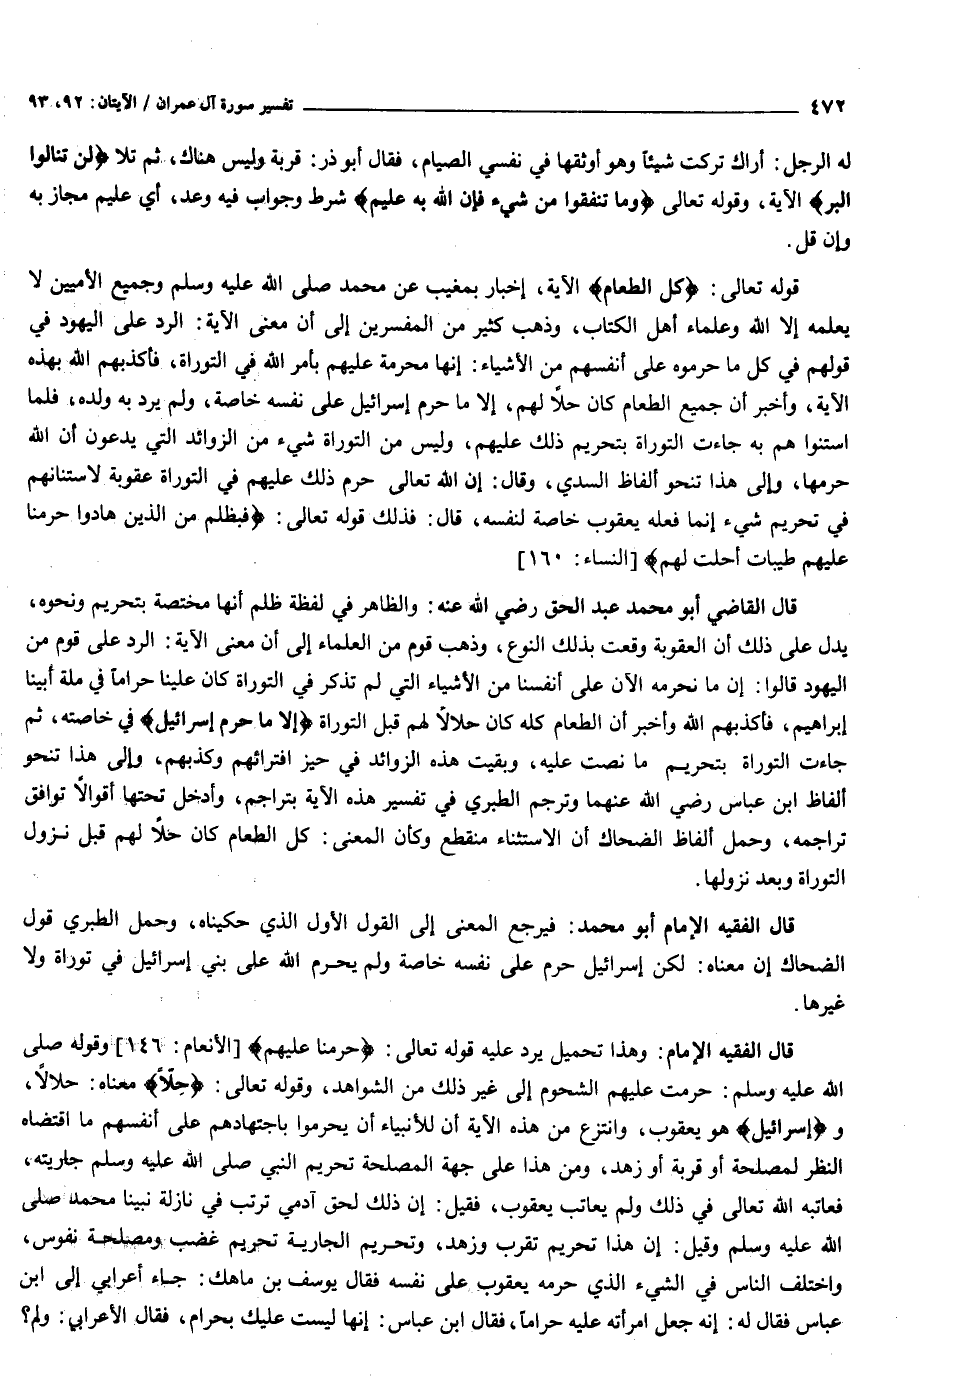 ٤٧٢ تفسير سورة آل عمران / الآيتان: ٩٢، ٩٣
له الرجل: أراك تركت شيئاً وهو أوثقها في نفسي الصيام، فقال أبو ذر: قربة وليس هناك، ثم تلا ﴿لن تنالوا
البر﴾ الآية، وقوله تعالى ﴿وما تنفقوا من شيء فإن الله به عليم﴾ شرط وجواب فيه وعد، أي عليم مجاز به
وإن قل.
قوله تعالى: ﴿كل الطعام﴾ الآية، إخبار بمغيب عن محمد صلى الله عليه وسلم وجميع الأميين لا
يعلمه إلا الله وعلماء أهل الكتاب، وذهب كثير من المفسرين إلى أن معنى الآية: الرد على اليهود في
قولهم في كل ما حرموه على أنفسهم من الأشياء: إنها محرمة عليهم بأمر الله في التوراة، فأكذبهم الله بهذه
الآية، وأخبر أن جميع الطعام كان حلاً لهم، إلا ما حرم إسرائيل على نفسه خاصة، ولم يرد به ولده، فلما
استنوا هم به جاءت التوراة بتحريم ذلك عليهم، وليس من التوراة شيء من الزوائد التي يدعون أن الله
حرمها، وإلى هذا تنحو ألفاظ السدي، وقال: إن الله تعالى حرم ذلك عليهم في التوراة عقوبة لاستنانهم
في تحريم شيء إنما فعله يعقوب خاصة لنفسه، قال: فذلك قوله تعالى: ﴿فبظلم من الذين هادوا حرمنا
عليهم طيبات أحلت لهم﴾ [النساء: ١٦٠]
قال القاضي أبو محمد عبد الحق رضي الله عنه: والظاهر في لفظة ظلم أنها مختصة بتحريم ونحوه،
يدل على ذلك أن العقوبة وقعت بذلك النوع، وذهب قوم من العلماء إلى أن معنى الآية: الرد على قوم من
اليهود قالوا: إن ما نحرمه الآن على أنفسنا من الأشياء التي لم تذكر في التوراة كان علينا حراماً في ملة أبينا
إبراهيم، فأكذبهم الله وأخبر أن الطعام كله كان حلالاً لهم قبل التوراة ﴿إلا ما حرم إسرائيل﴾ في خاصته، ثم
جاءت التوراة بتحريم ما نصت عليه، وبقيت هذه الزوائد في حيز افترائهم وكذبهم، وإلى هذا تنحو
ألفاظ ابن عباس رضي الله عنهما وترجم الطبري في تفسير هذه الآية بتراجم، وأدخل تحتها أقوالاً توافق
تراجمه، وحمل ألفاظ الضحاك أن الاستثناء منقطع وكأن المعنى: كل الطعام كان حلاً لهم قبل نزول
التوراة وبعد نزولها.
قال الفقيه الإمام أبو محمد: فيرجع المعنى إلى القول الأول الذي حكيناه، وحمل الطبري قول
الضحاك إن معناه: لكن إسرائيل حرم على نفسه خاصة ولم يحرم الله على بني إسرائيل في توراة ولا
غيرها.
قال الفقيه الإمام: وهذا تحميل يرد عليه قوله تعالى: ﴿حرمنا عليهم﴾ [الأنعام: ١٤٦] وقوله صلى
الله عليه وسلم: حرمت عليهم الشحوم إلى غير ذلك من الشواهد، وقوله تعالى: ﴿حِلّاً﴾ معناه: حلالاً،
و﴿إسرائيل﴾ هو يعقوب، وانتزع من هذه الآية أن للأنبياء أن يحرموا باجتهادهم على أنفسهم ما اقتضاه
النظر لمصلحة أو قربة أو زهد، ومن هذا على جهة المصلحة تحريم النبي صلى الله عليه وسلم جاريته،
فعاتبه الله تعالى في ذلك ولم يعاتب يعقوب، فقيل: إن ذلك لحق آدمي ترتب في نازلة نبينا محمد صلى
الله عليه وسلم وقيل: إن هذا تحريم تقرب وزهد، وتحريم الجارية تحريم غضب ومصلحة نفوس،
واختلف الناس في الشيء الذي حرمه يعقوب على نفسه فقال يوسف بن ماهك: جاء أعرابي إلى ابن
عباس فقال له: إنه جعل امرأته عليه حراماً، فقال ابن عباس: إنها ليست عليك بحرام، فقال الأعرابي: ولم؟